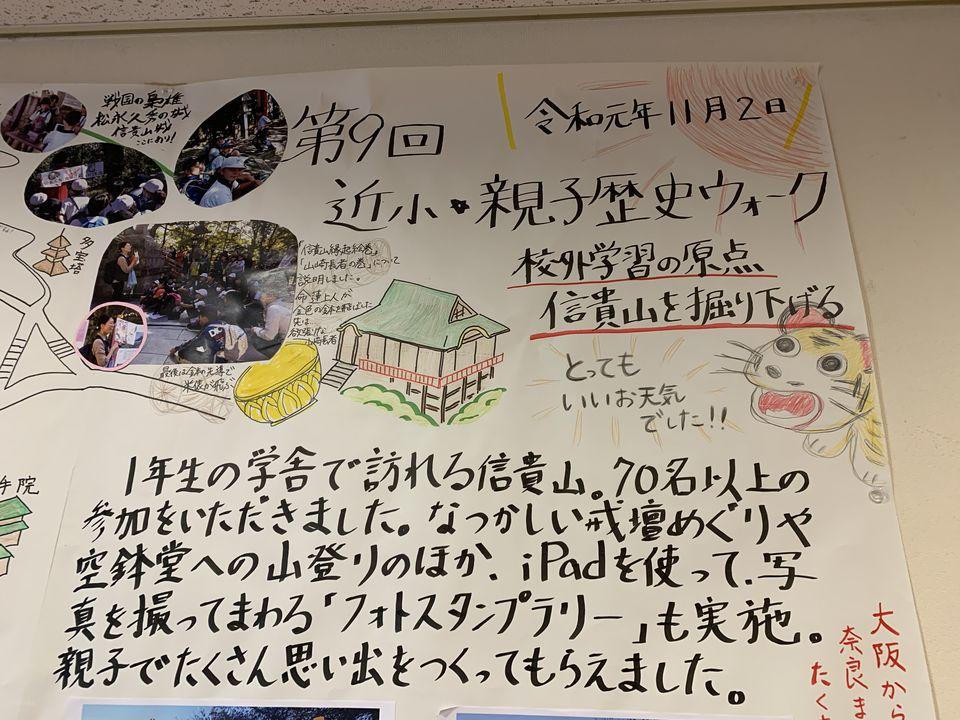 戦国の梟雄
松永久秀の城
信貴山城
ここにあり!
第9回
令和元年11月2日
近小・親子歴史ウォーク
校外学習の原点
信貴山を掘り下げる
多宝塔
「信貴山縁起絵巻」
「山崎長者の巻」について
説明しました。
命蓮上人が
金色の鉢を飛ばした
先は…
欲張りな
山崎長者
最後は金鉢の先導で
米俵が飛ぶ
とっても
いいお天気
でした!!
1年生の学舎で訪れる信貴山。70名以上の
参加をいただきました。なつかしい戒壇めぐりや
空鉢堂への山登りのほか、iPadを使って、写
真を撮ってまわる「フォトスタンプラリー」も実施。
親子でたくさん思い出をつくってもらえました。
手院
大阪から
奈良ま
たく